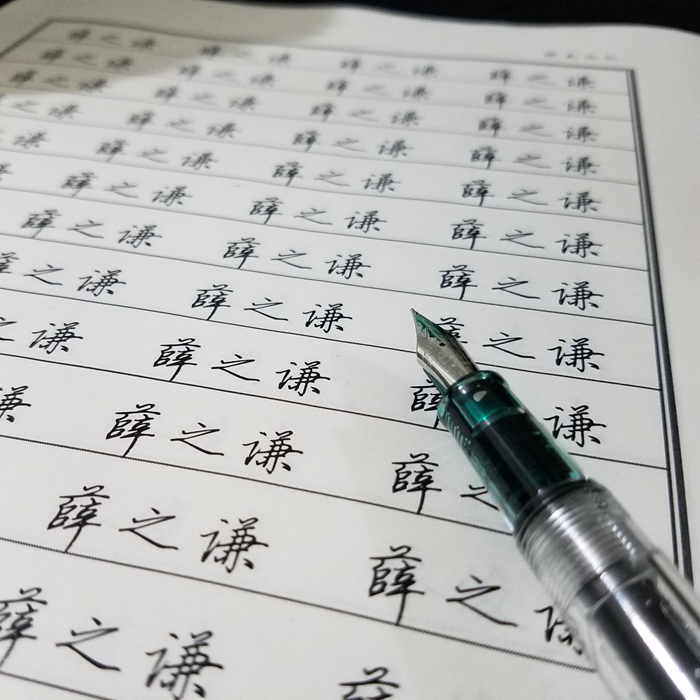 薛之谦 薛之谦 薛之谦 薛之谦
薛之谦 薛之谦 薛之谦 薛之谦
薛之谦 薛之谦 薛之谦 薛之谦
之谦 薛之谦 薛之谦 薛之谦
谦 薛之谦 薛之谦 薛之谦
薛之谦 薛之谦 薛之谦
薛之谦 薛之谦 薛之谦
薛之谦 薛之谦 薛之谦
之谦 薛之谦 薛之谦
谦 薛之谦 薛 谦
薛之谦 薛之
薛之谦 薛之谦
薛之谦 薛